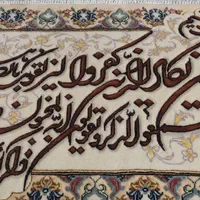 يكاد الذين كفروا ليزلقونك
سمعوا الذكر و يقولون انه لمجنون